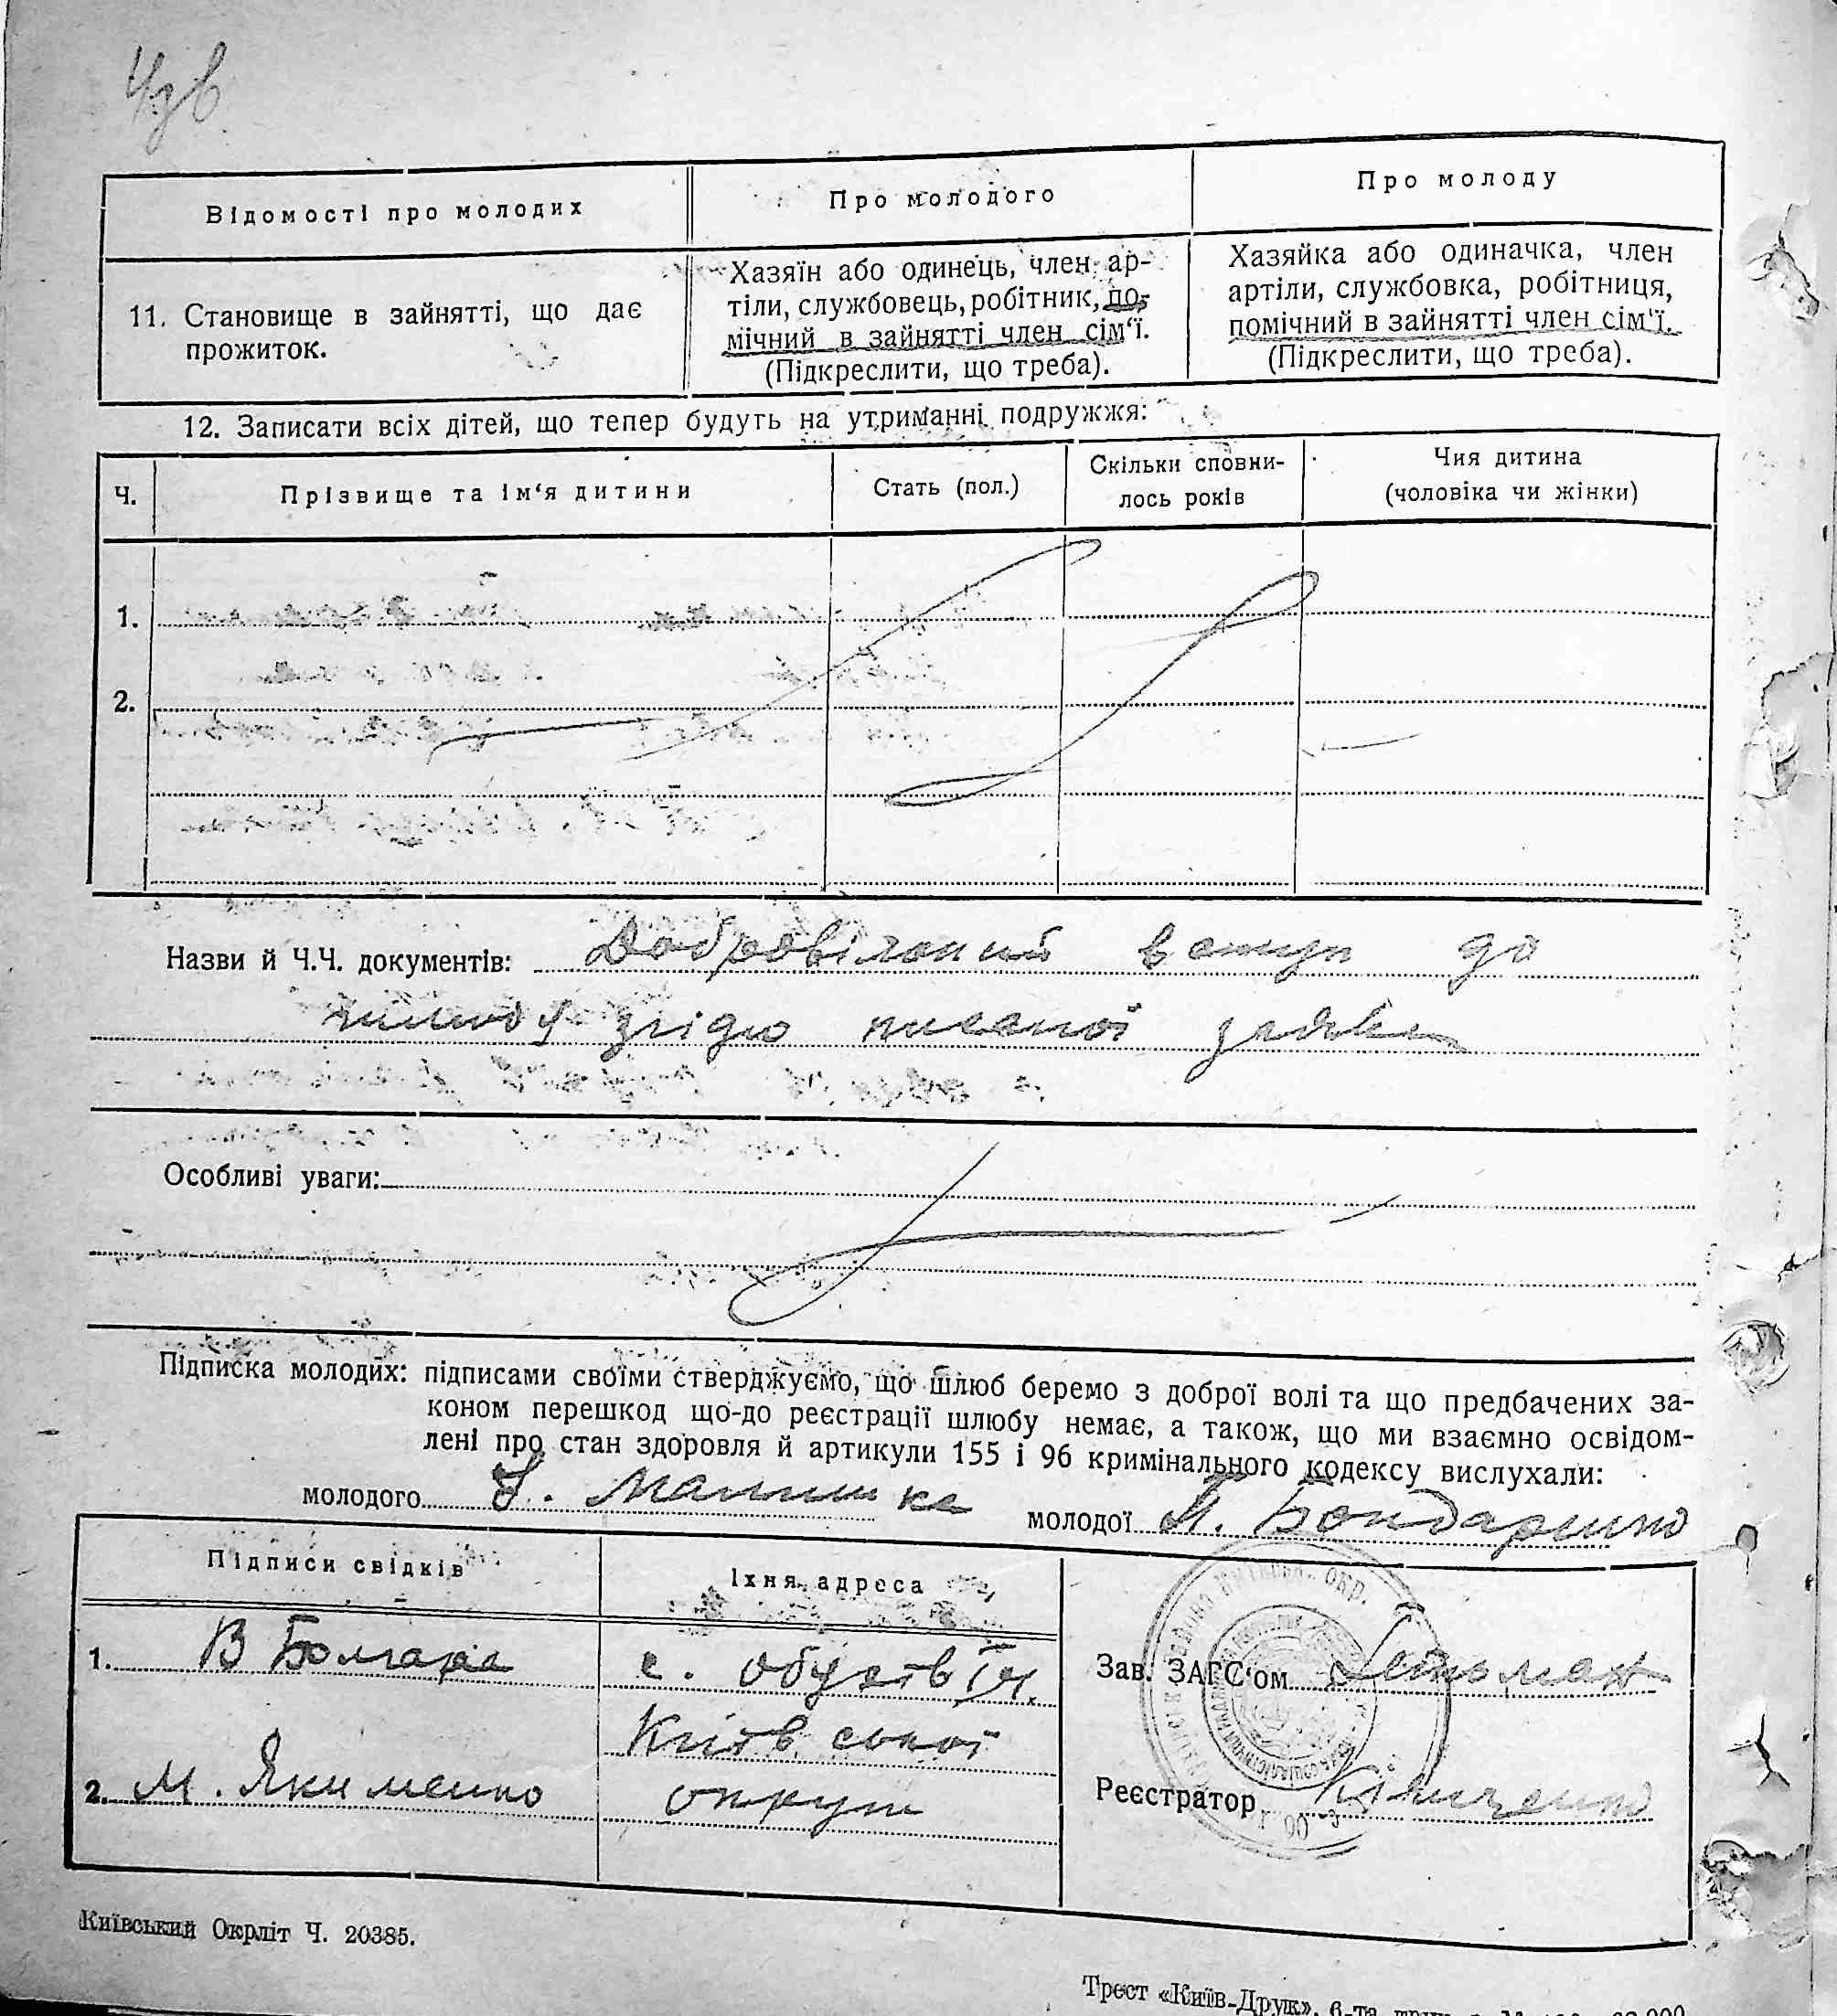 Відомості про молодих
Про молодого
Про молоду
11. Становище в зайнятті, що дає
прожиток.
Хазяїн або одинець, член ар-
тіли, службовець, робітник, по-
мічний в зайнятті член сім'ї.
(Підкреслити, що треба).
Хазяйка або одиначка, член
артіли, службовка, робітниця,
помічний в зайнятті член сім'ї.
(Підкреслити, що треба).
12. Записати всіх дітей, що тепер будуть на утриманні подружжя:
Ч.
Прізвище та ім'я дитини
Стать (пол.)
Скільки сповни-
лось років
Чия дитина
(чоловіка чи жінки)
1.
2.
Назви й Ч.Ч. документів: Добровільний вступ до
згідно писаної заяви
Особливі уваги:
Підписка молодих: підписами своїми стверджуємо, що шлюб беремо з доброї волі та що предбачених за-
коном перешкод що-до реєстрації шлюбу немає, а також, що ми взаємно освідом-
лені про стан здоровля й артикули 155 і 96 кримінального кодексу вислухали:
молодого
молодої М. Бондаренко
Підписи свідків
Їхня адреса
1. В Болгара
с. Обухів
Київської
2. М. Якименко
округи
Зав. ЗАГС'ом Гетьман
Реєстратор
Київський Окрліт Ч. 20385.
Трест «Київ-Друк», 6-та